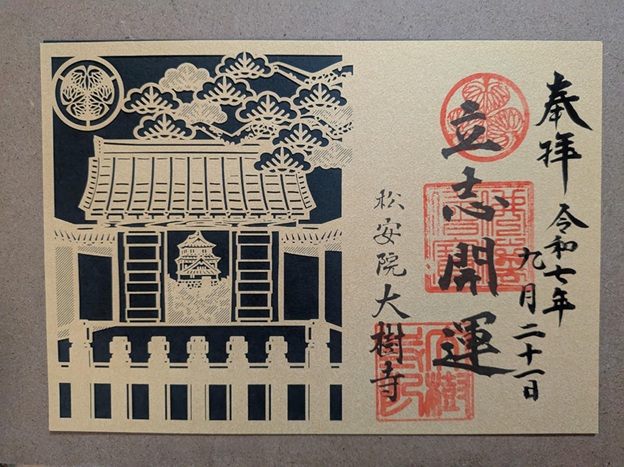 奉拝 令和七年
九月二十一日
立志開運
松安院 大樹寺
大樹寺印